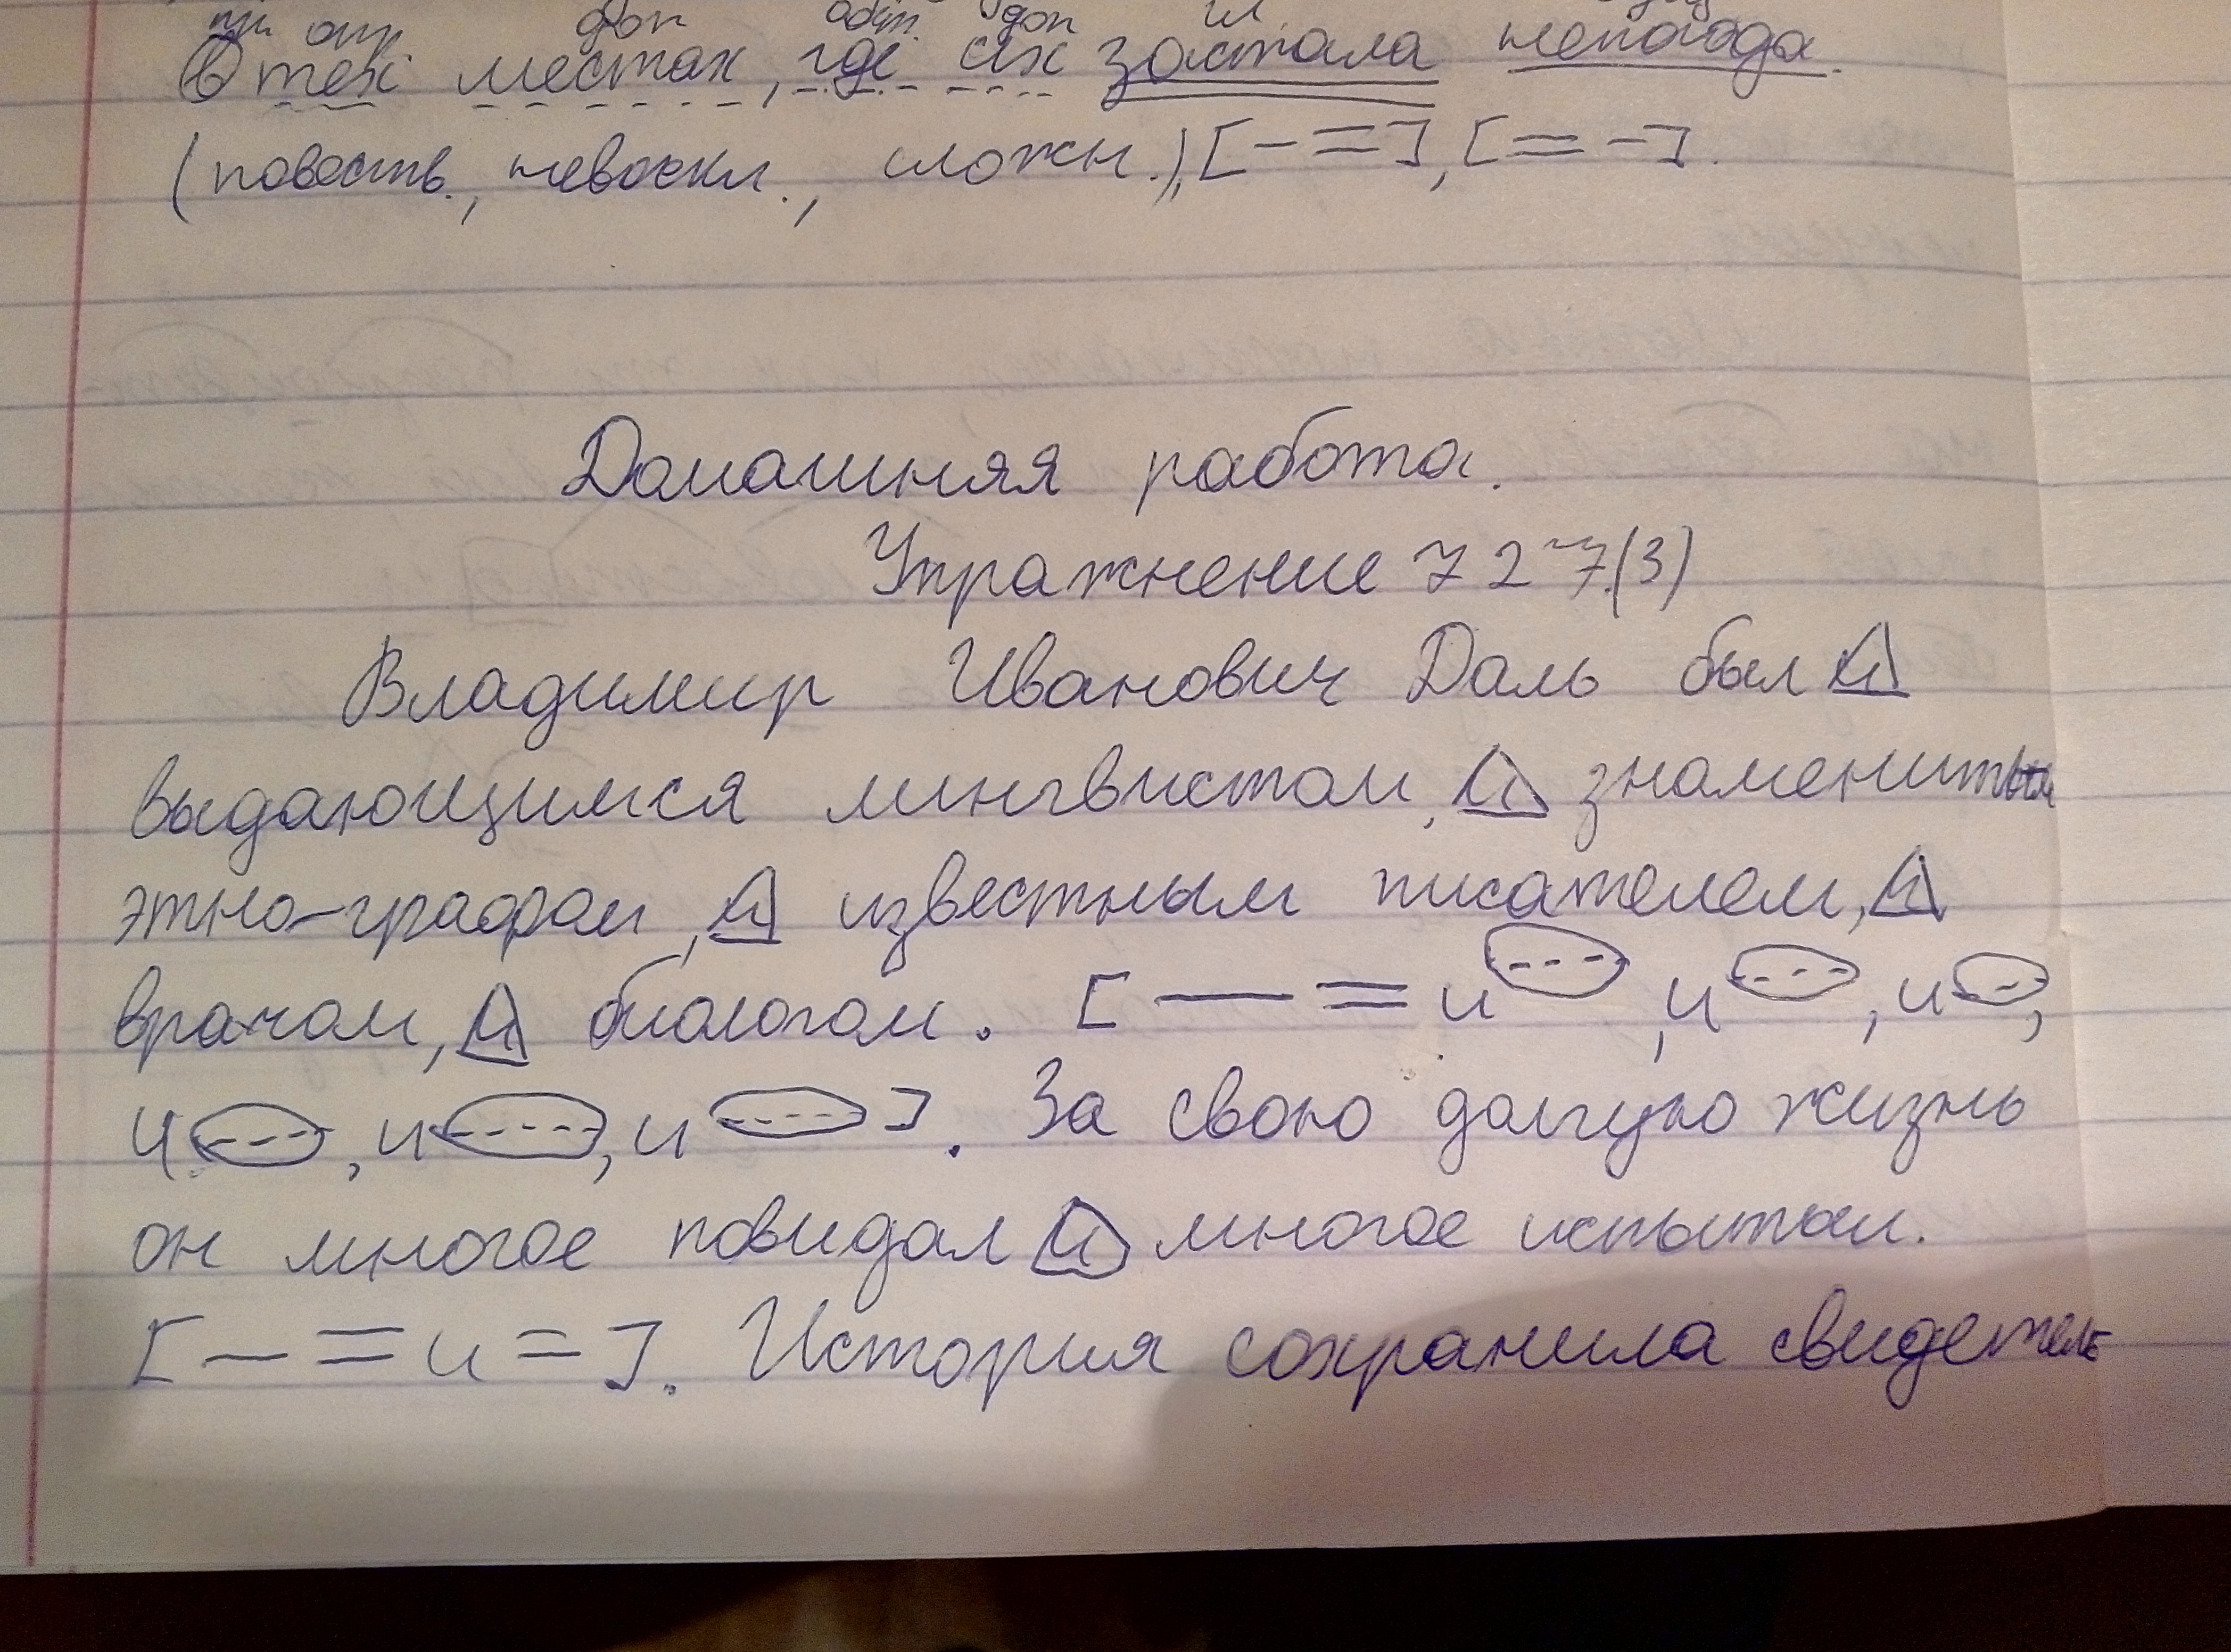 доп обст. доп гл.
В тех местах, где их застала непогода.
(повеств., невоскл., сложн.), [— =], [= —].
Домашняя работа.
Упражнение 727.(3)
Владимир Иванович Даль был и
выдающимся лингвистом, и знаменитым
этно-графом, и известным писателем, и
врачом, и биологом. [— = и, и, и,
и, и, и]. За свою долгую жизнь
он многое повидал и многое испытал.
[— = и =]. История сохранила свидетель